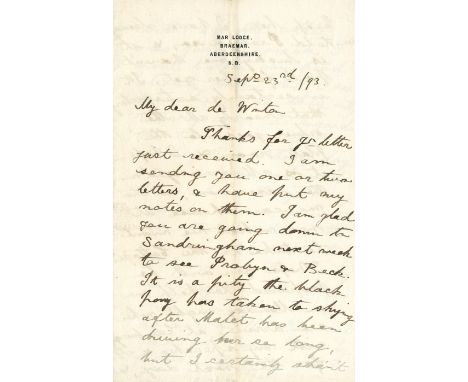 MAR LODGE,
BRAEMAR,
ABERDEENSHIRE.
N.B.
Sepr 23rd/93.
My dear de Winton
Thanks for yr letter
just received. I am
sending you one or two
letters, & have put my
notes on them. I am glad
you are going down to
Sandringham next week
to see Probyn & Beck.
It is a pity the black
pony has taken to shying
after Malet has been
driving her so long,
but I certainly shan't